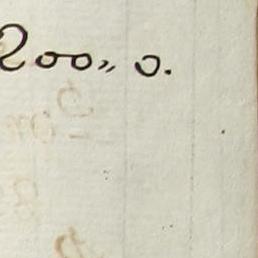 200,, 0.